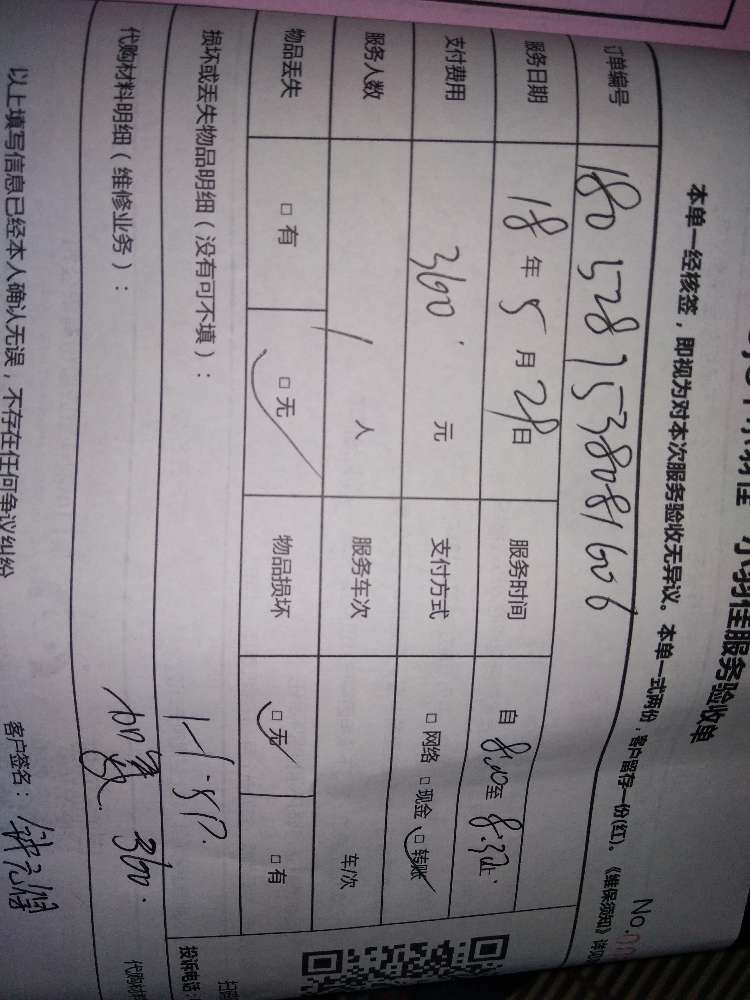 小羽佳服务验收单
本单一经核签，即视为对本次服务验收无异议。本单一式两份，客户留存一份(红)。《维保须知》
No.
订单编号 180528153808160 6
服务日期 18年5月28日 服务时间 自8:00至8:30止
支付费用 360元 支付方式 □网络 □现金 □转账
服务人数 1人 服务车次 车/次
物品丢失 □有 □无 物品损坏 □无 □有
损坏或丢失物品明细（没有可不填）： 1-1.5P.
代购材料明细（维修业务）： 加氟 360.
以上填写信息已经本人确认无误，不存在任何争议纠纷 客户签名：
投诉电话：
代购材